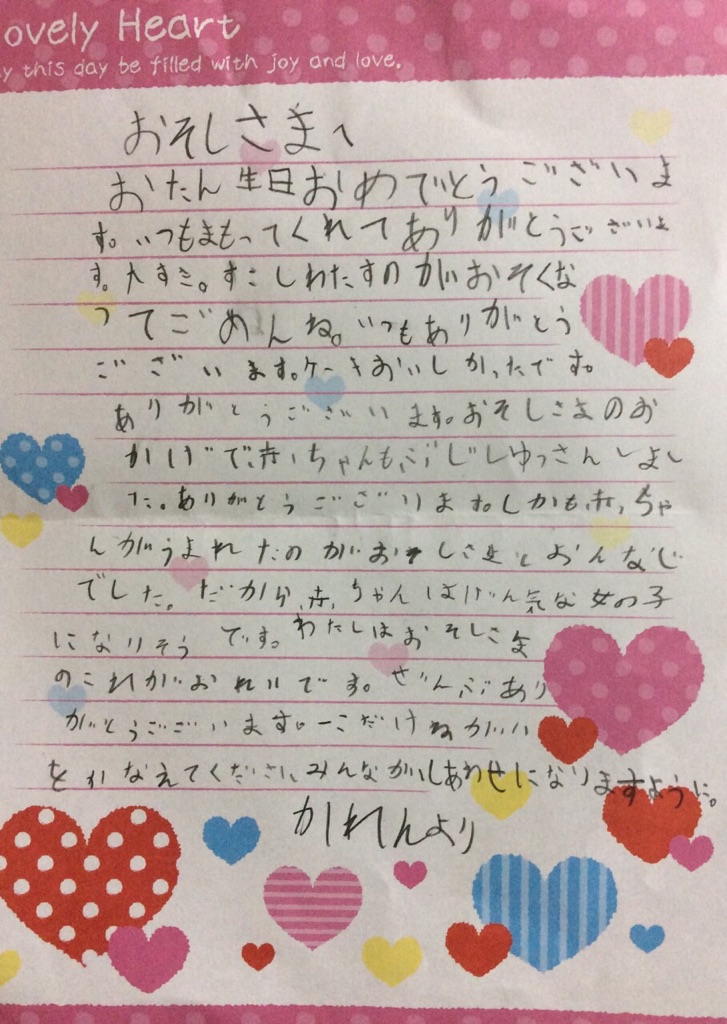 ovely Heart
y this day be filled with joy and love.
おそしさまへ
おたん生日おめでとうございま
す。いつもまもってくれてありがとうございま
す。大すき。すこしわたすのがおそくな
ってごめんね。いつもありがとう
ございます。ケーキおいしかったです。
ありがとうございます。おそしさまのお
かげで、赤ちゃんもぶじしゅっさんしまし
た。ありがとうございます。しかも赤ちゃ
んがうまれたのがおそしさまとおんなじ
でした。だから、赤ちゃんはげん気な女の子
になりそうです。わたしはおそしさま
のこれがおれいです。ぜんぶあり
がとうございます。一こだけねがい
をかなえてくださいみんながしあわせになりますように。
かれんより